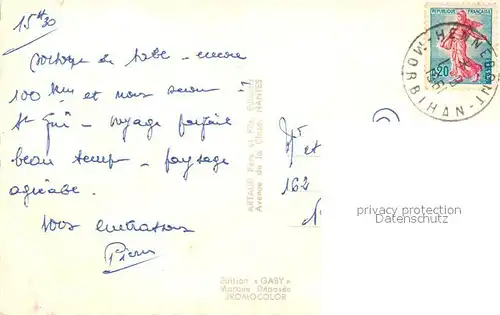 15h30
de table - encore
100 km et nous serons
St - voyage parfait
beau temps - paysage
agréable.
vous embrassons
Pierre
ARTAUD Père et Fils, Éditeurs
Avenue de la Close, NANTES
Mr et
162
Edition « GABY »
Marque Déposée
BROMOCOLOR
REPUBLIQUE FRANÇAISE
0,20
HENNEBONT
MORBIHAN
privacy protection
Datenschutz